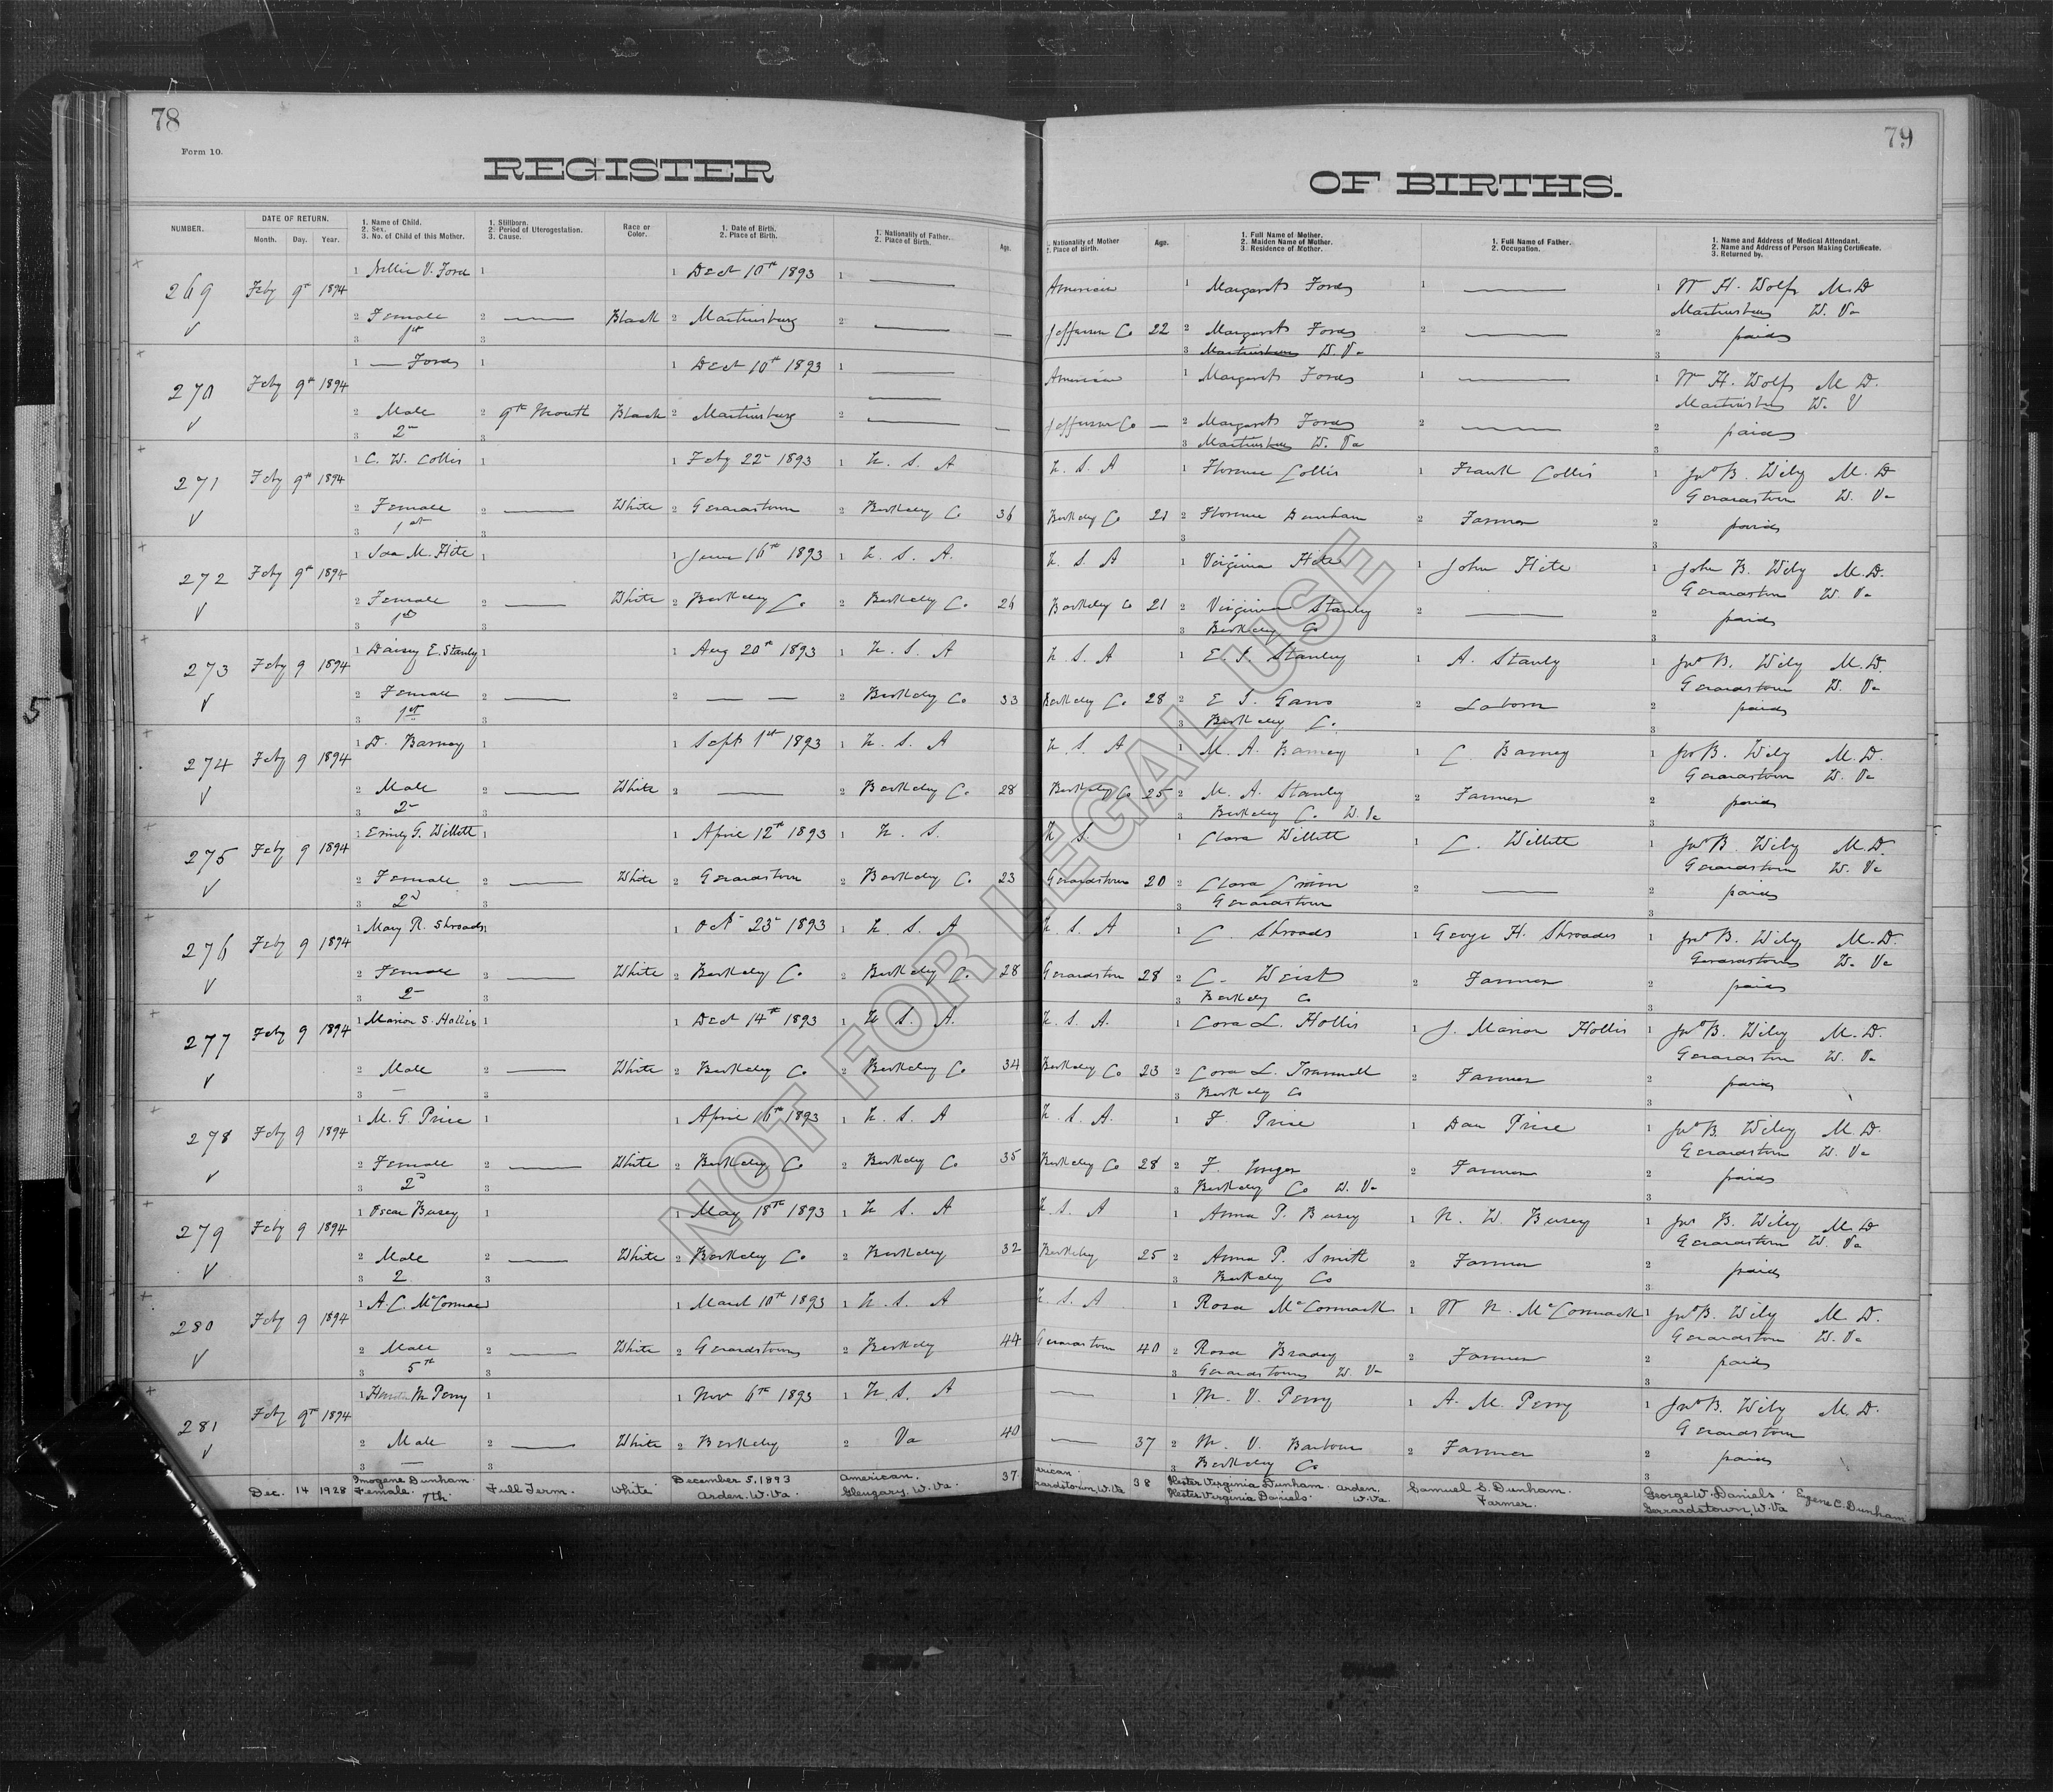 78
Form 10.
REGISTER
NUMBER.
DATE OF RETURN.
Month. Day. Year.
1. Name of Child.
2. Sex.
3. No. of Child of this Mother.
1. Stillborn.
2. Period of Uterogestation.
3. Cause.
Race or Color.
1. Date of Birth.
2. Place of Birth.
1. Nationality of Father.
2. Place of Birth.
Age.
79
OF BIRTHS.
1. Nationality of Mother
2. Place of Birth.
Age.
1. Full Name of Mother.
2. Maiden Name of Mother.
3. Residence of Mother.
1. Full Name of Father.
2. Occupation.
1. Name and Address of Medical Attendant.
2. Name and Address of Person Making Certificate.
3. Returned by.
269 Feby 9th 1894 1 Nellie V. Ford 1 1 Dect 10th 1893 1 — American 1 Margaret Ford 1 — 1 W H. Wolff M. D
Martinsburg W. Va
2 Female 2 — Black 2 Martinsburg 2 — — Jefferson Co 22 2 Margaret Ford 2 — 2 paid
3 1st 3 Martinsburg W. Va 3
270 Feby 9th 1894 1 — Ford 1 1 Dect 10th 1893 1 — American 1 Margaret Ford 1 — 1 W H. Wolff M D.
Martinsburg W. V
2 Male 2 9th Month Black 2 Martinsburg 2 — — Jefferson Co — 2 Margaret Ford 2 — 2 paid
3 2- 3 3 Martinsburg W. Va 3
271 Feby 9th 1894 1 C. W. Collis 1 1 Feby 22- 1893 1 U. S. A U. S. A 1 Florence Collis 1 Frank Collis 1 Jno B. Wily M. D
Gerardstown W. Va
2 Female 2 — White 2 Gerardstown 2 Berkeley Co 36 Berkeley Co 21 2 Florence Dunham 2 Farmer 2 paid
3 1st 3 3 3
272 Feby 9th 1894 1 Ida M. Hite 1 1 June 16th 1893 1 U. S. A. U. S. A 1 Virginia Hite 1 John Hite 1 John B. Wily M. D.
Gerardstown W. Va
2 Female 2 — White 2 Berkeley Co 2 Berkeley Co. 26 Berkeley Co 21 2 Virginia Stanley 2 — 2 paid
3 3 3 Berkeley Co 3
273 Feby 9 1894 1 Daisey E. Stanly 1 1 Aug 20th 1893 1 U. S. A U. S. A 1 E. S. Stanley 1 A. Stanly 1 Jno B. Wily M. D.
Gerardstown W. Va
2 Female 2 — 2 — — 2 Berkeley Co 33 Berkeley Co. 28 2 E S. Gano 2 Laborer 2 paid
3 1st 3 3 Berkeley Co. 3
274 Feby 9 1894 1 D. Barney 1 1 Sept 1st 1893 1 U. S. A U. S. A 1 M. A. Barney 1 C Barney 1 Jno B. Wily M. D.
Gerardstown W. Va
2 Male 2 — White 2 — 2 Berkeley Co. 28 Berkeley Co 25 2 M. A. Stanley 2 Farmer 2 paid
3 2- 3 3 Berkeley Co. W. Va 3
275 Feby 9 1894 1 Emily G. Willett 1 1 April 12th 1893 1 U. S. U S. 1 Clara Willett 1 C. Willett 1 Jno B. Wily M. D.
Gerardstown W. Va
2 Female 2 — White 2 Gerardstown 2 Berkeley Co. 23 Gerardstown 20 2 Clara 2 — 2 paid
3 2d 3 3 Gerardstown 3
276 Feby 9 1894 1 Mary R. Shroads 1 1 Oct 23- 1893 1 U. S. A U. S. A 1 C. Shroads 1 George H. Shroades 1 Jno B. Wily M. D.
Gerardstown W. Va
2 Female 2 — White 2 Berkeley Co 2 Berkeley Co. 28 Gerardstown 28 2 C. Weist 2 Farmer 2 paid
3 2- 3 3 Berkeley Co 3
277 Feby 9 1894 1 Marion S. Hollis 1 1 Dect 14th 1893 1 U S. A. U. S. A. 1 Cora L. Hollis 1 J. Marion Hollis 1 Jno B. Wily M. D.
Gerardstown W. Va
2 Male 2 — White 2 Berkeley Co 2 Berkeley Co 34 Berkeley Co 23 2 Cora L. Trammell 2 Farmer 2 paid
3 — 3 3 Berkeley Co 3
278 Feby 9 1894 1 M. G. Price 1 1 April 16th 1893 1 U. S. A U. S. A. 1 F. Price 1 Dan Price 1 Jno B. Wily M. D.
Gerardstown W. Va
2 Female 2 — White 2 Berkeley Co 2 Berkeley Co 35 Berkeley Co 28 2 F. Unger 2 Farmer 2 paid
3 2d 3 3 Berkeley Co W. Va 3
279 Feby 9 1894 1 Oscar Busey 1 1 May 18th 1893 1 U S. A U. S. A 1 Anna P. Busey 1 N. W. Busey 1 Jno B. Wily M. D
Gerardstown W. Va
2 Male 2 — White 2 Berkeley Co 2 Berkeley 32 Berkeley 25 2 Anna P. Smith 2 Farmer 2 paid
3 2 3 3 Berkeley Co 3
280 Feby 9 1894 1 A. C. McCormac 1 1 March 10th 1893 1 U. S. A U. S. A 1 Rosa McCormack 1 W N. McCormack 1 Jno B. Wily M. D.
Gerardstown W. Va
2 Male 2 — White 2 Gerardstown 2 Berkeley 44 Gerardstown 40 2 Rosa Brady 2 Farmer 2 paid
3 5th 3 3 Gerardstown W. Va 3
281 Feby 9th 1894 1 M Perry 1 1 Nov 6th 1893 1 U. S. A — 1 M. V. Perry 1 A. M. Perry 1 Jno B. Wily M. D.
Gerardstown
2 Male 2 — White 2 Berkeley 2 Va 40 — 37 2 M. V. Barbour 2 Farmer 2 paid
3 — 3 3 Berkeley Co 3
Dec. 14 1928 Imogene Dunham. Female. 7th. Full Term. White December 5, 1893 Arden. W. Va. American. Glengary, W. Va. 37 erican. rardstown, W. Va 38 Hester Virginia Dunham. Arden. Hester Virginia Daniels. W. Va. Samuel S. Dunham. Farmer. George W. Daniels Gerrardstown, W. Va Eugene C. Dunham
NOT FOR LEGAL USE
5